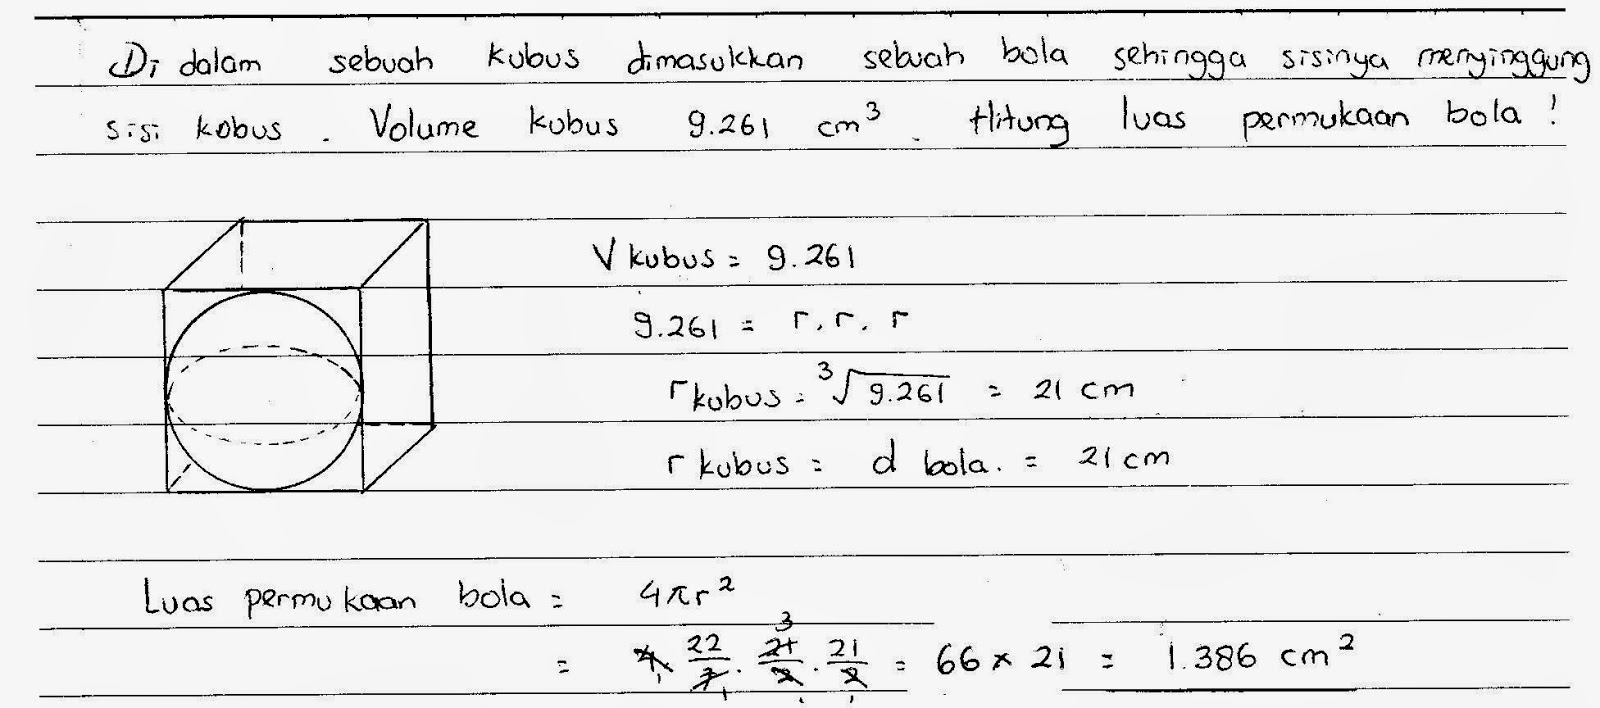 Di dalam sebuah kubus dimasukkan sebuah bola sehingga sisinya menyinggung
sisi kobus. Volume kubus 9.261 cm³. Hitung luas permukaan bola!
V kubus = 9.261
9.261 = r. r. r
r kubus = ³√9.261 = 21 cm
r kubus = d bola. = 21 cm
Luas permukaan bola = 4πr²
= 4. 22/7. 21/2. 21/2 = 66 × 21 = 1.386 cm²